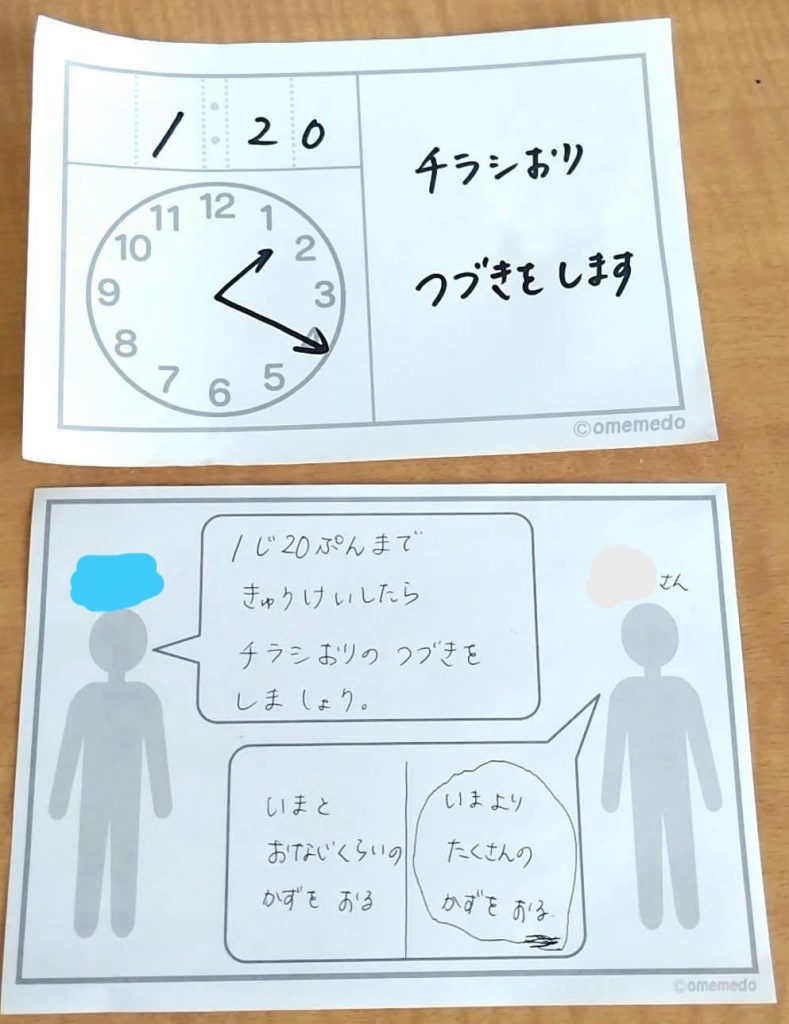 1:20
11 12 1
10 2
9 3
8 4
7 6 5
チラシおり
つづきをします
©omemedo
1じ20ぷんまで
きゅうけいしたら
チラシおりの つづきを
しましょう。
さん
いまと
おなじくらいの
かずを おる
いまより
たくさんの
かずを おる
©omemedo